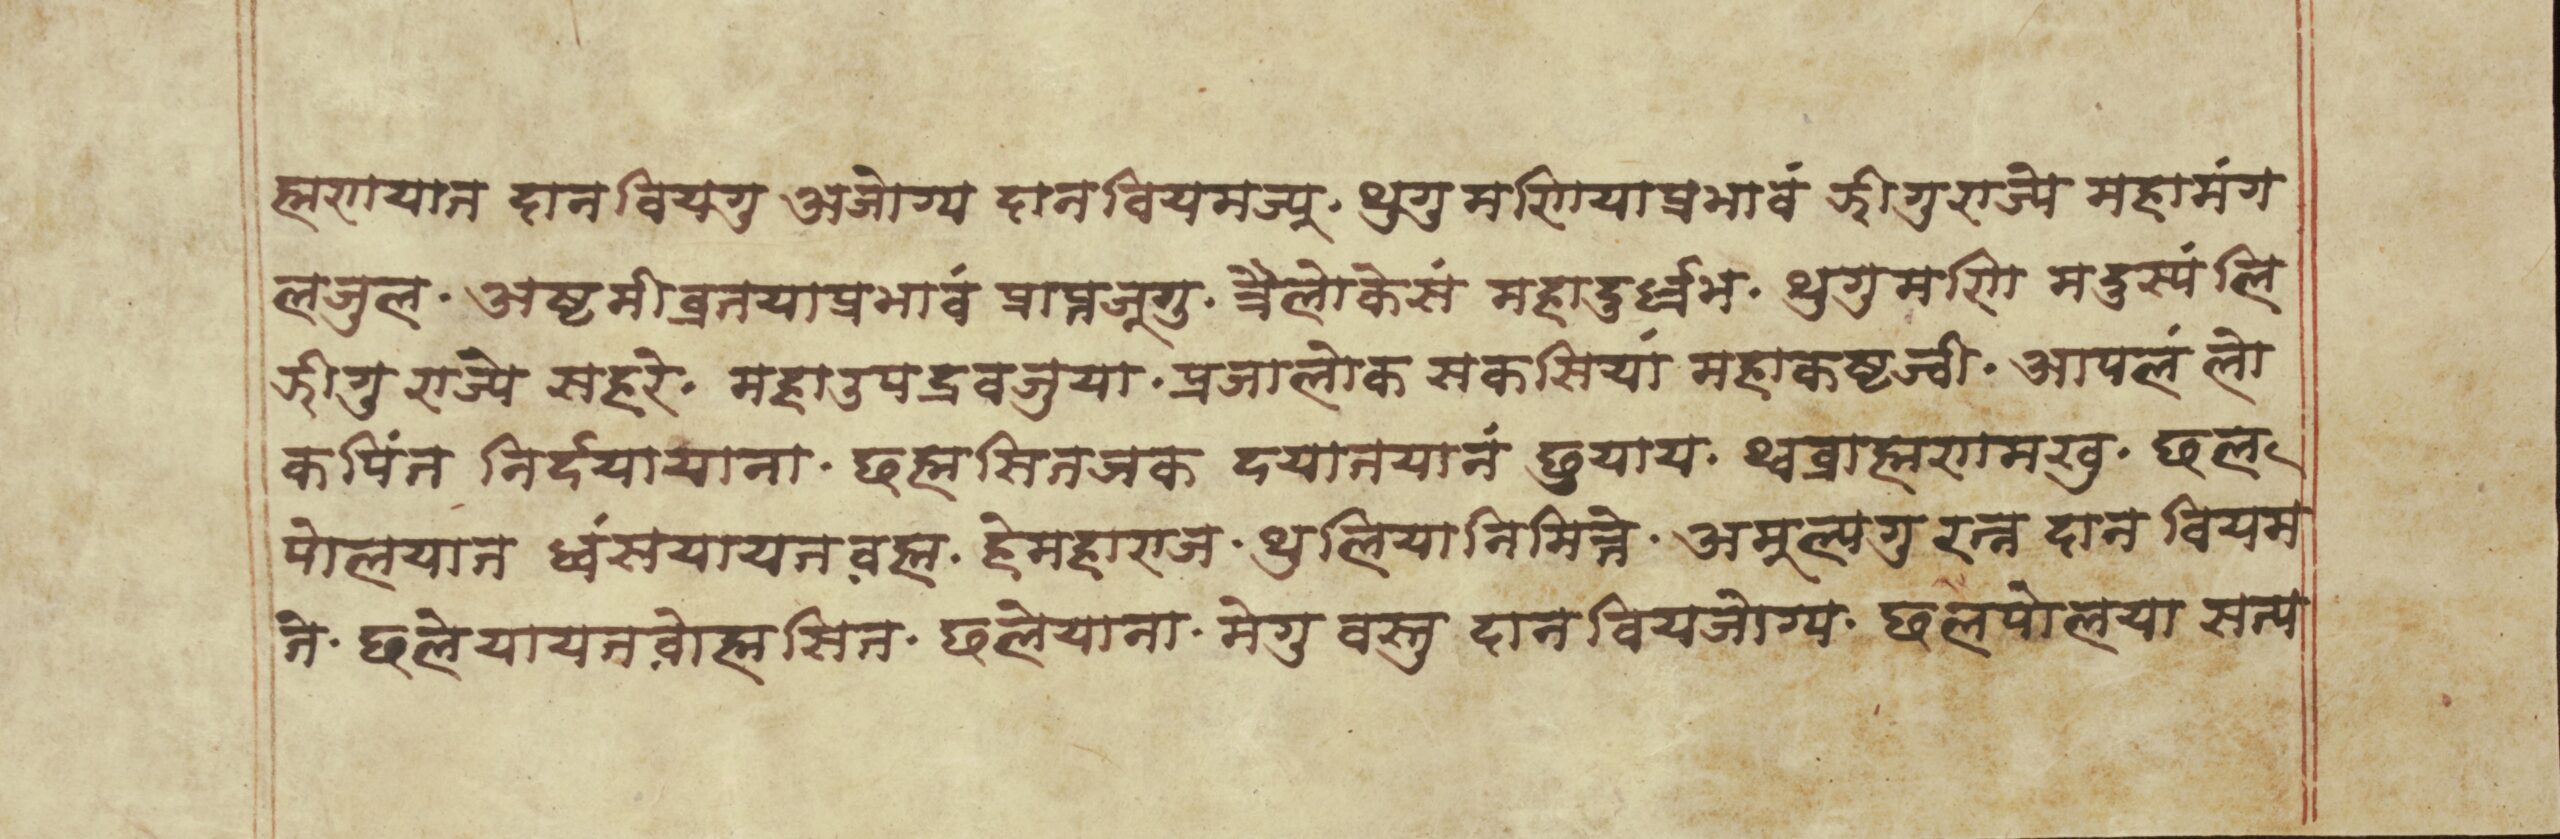 ह्मणयात दान वियगु अजोग्य दान वियमज्यू. थुगु मणियाप्रभावं झीगु राज्ये महामंग
लजुल. अष्टमीव्रतयाप्रभावं प्राप्तजूगु. त्रैलोकेसं महादुर्ल्लभ. थुगु मणि मदुस्यं लि
झीगु राज्ये सहरे. महाउपद्रवजुया. प्रजालोक सकसियां महाकष्टज्वी. आपलं लो
कपिंत निर्दयायाना. छह्मसितजक दयातयानं छुयाय. थ्वब्राह्मणमखु. छल
पोलयात ध्वंसयायतव़ह्म. हेमहाराज. थुलियानिमित्ते. अमूल्यगु रत्न दान वियम
ते. छलेयायतव़ोह्मसित. छलेयाना. मेगु वस्तु दान वियजोग्य. छलपोलया सत्य